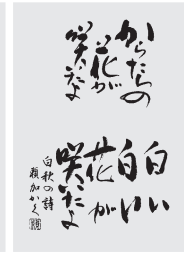 からたちの
花が
咲いたよ
白い
白い
花が
咲いたよ
白秋の詩
かく